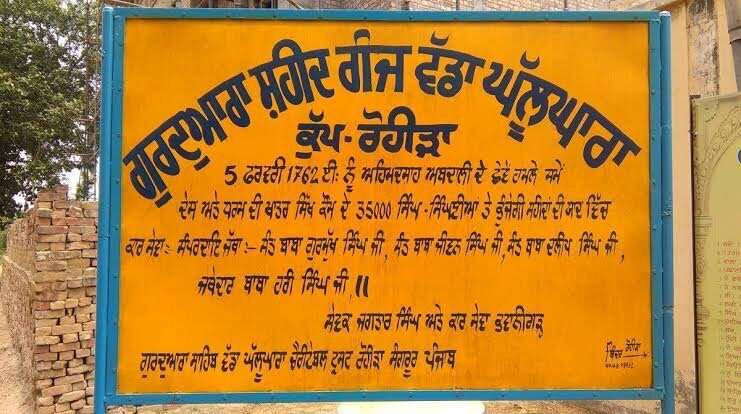 ਗੁਰਦੁਆਰਾ ਸ਼ਹੀਦ ਗੰਜ ਵੱਡਾ ਘੱਲੂਘਾਰਾ
ਕੁੱਪ-ਰੋਹੀੜਾ
5 ਫਰਵਰੀ 1762 ਈ: ਨੂੰ ਅਹਿਮਦਸਾਹ ਅਬਦਾਲੀ ਦੇ ਛੇਵੇਂ ਹਮਲੇ ਸਮੇਂ
ਦੇਸ ਅਤੇ ਧਰਮ ਦੀ ਖਤਰ ਸਿੱਖ ਕੌਮ ਦੇ 35000 ਸਿੰਘ-ਸਿੰਘਣੀਆ ਤੇ ਭੁਜੰਗੀ ਸਹੀਦਾਂ ਦੀ ਯਾਦ ਵਿੱਚ
ਕਾਰ ਸੇਵਾ:- ਸੰਪਰਦਾਇ ਜੱਥਾ:- ਸੰਤ ਬਾਬਾ ਗੁਰਮੁੱਖ ਸਿੰਘ ਜੀ, ਸੰਤ ਬਾਬਾ ਜੀਵਨ ਸਿੰਘ ਜੀ, ਸੰਤ ਬਾਬਾ ਦਲੀਪ ਸਿੰਘ ਜੀ,
ਜਥੇਦਾਰ ਬਾਬਾ ਹਰੀ ਸਿੰਘ ਜੀ ॥
ਸੇਵਕ ਜਗਤਾਰ ਸਿੰਘ ਅਤੇ ਕਾਰ ਸੇਵਾ ਭਵਾਨੀਗੜ੍ਹ
ਗੁਰਦੁਆਰਾ ਸਾਹਿਬ ਵੱਡਾ ਘੱਲੂਘਾਰਾ ਚੈਰੀਟੇਬਲ ਟ੍ਰਸਟ ਰੋਹੀੜਾ ਸੰਗਰੂਰ ਪੰਜਾਬ
ਰੋਹੀੜਾ